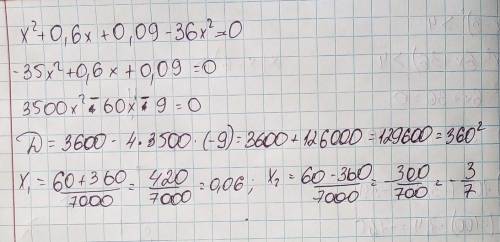 x²+0,6x+0,09-36x²=0
-35x²+0,6x+0,09=0
3500x²-60x-9=0
D=3600-4·3500·(-9)=3600+126000=129600=360²
x₁=(60+360)/7000=420/7000=0,06; x₂=(60-360)/7000=-300/700=-3/7